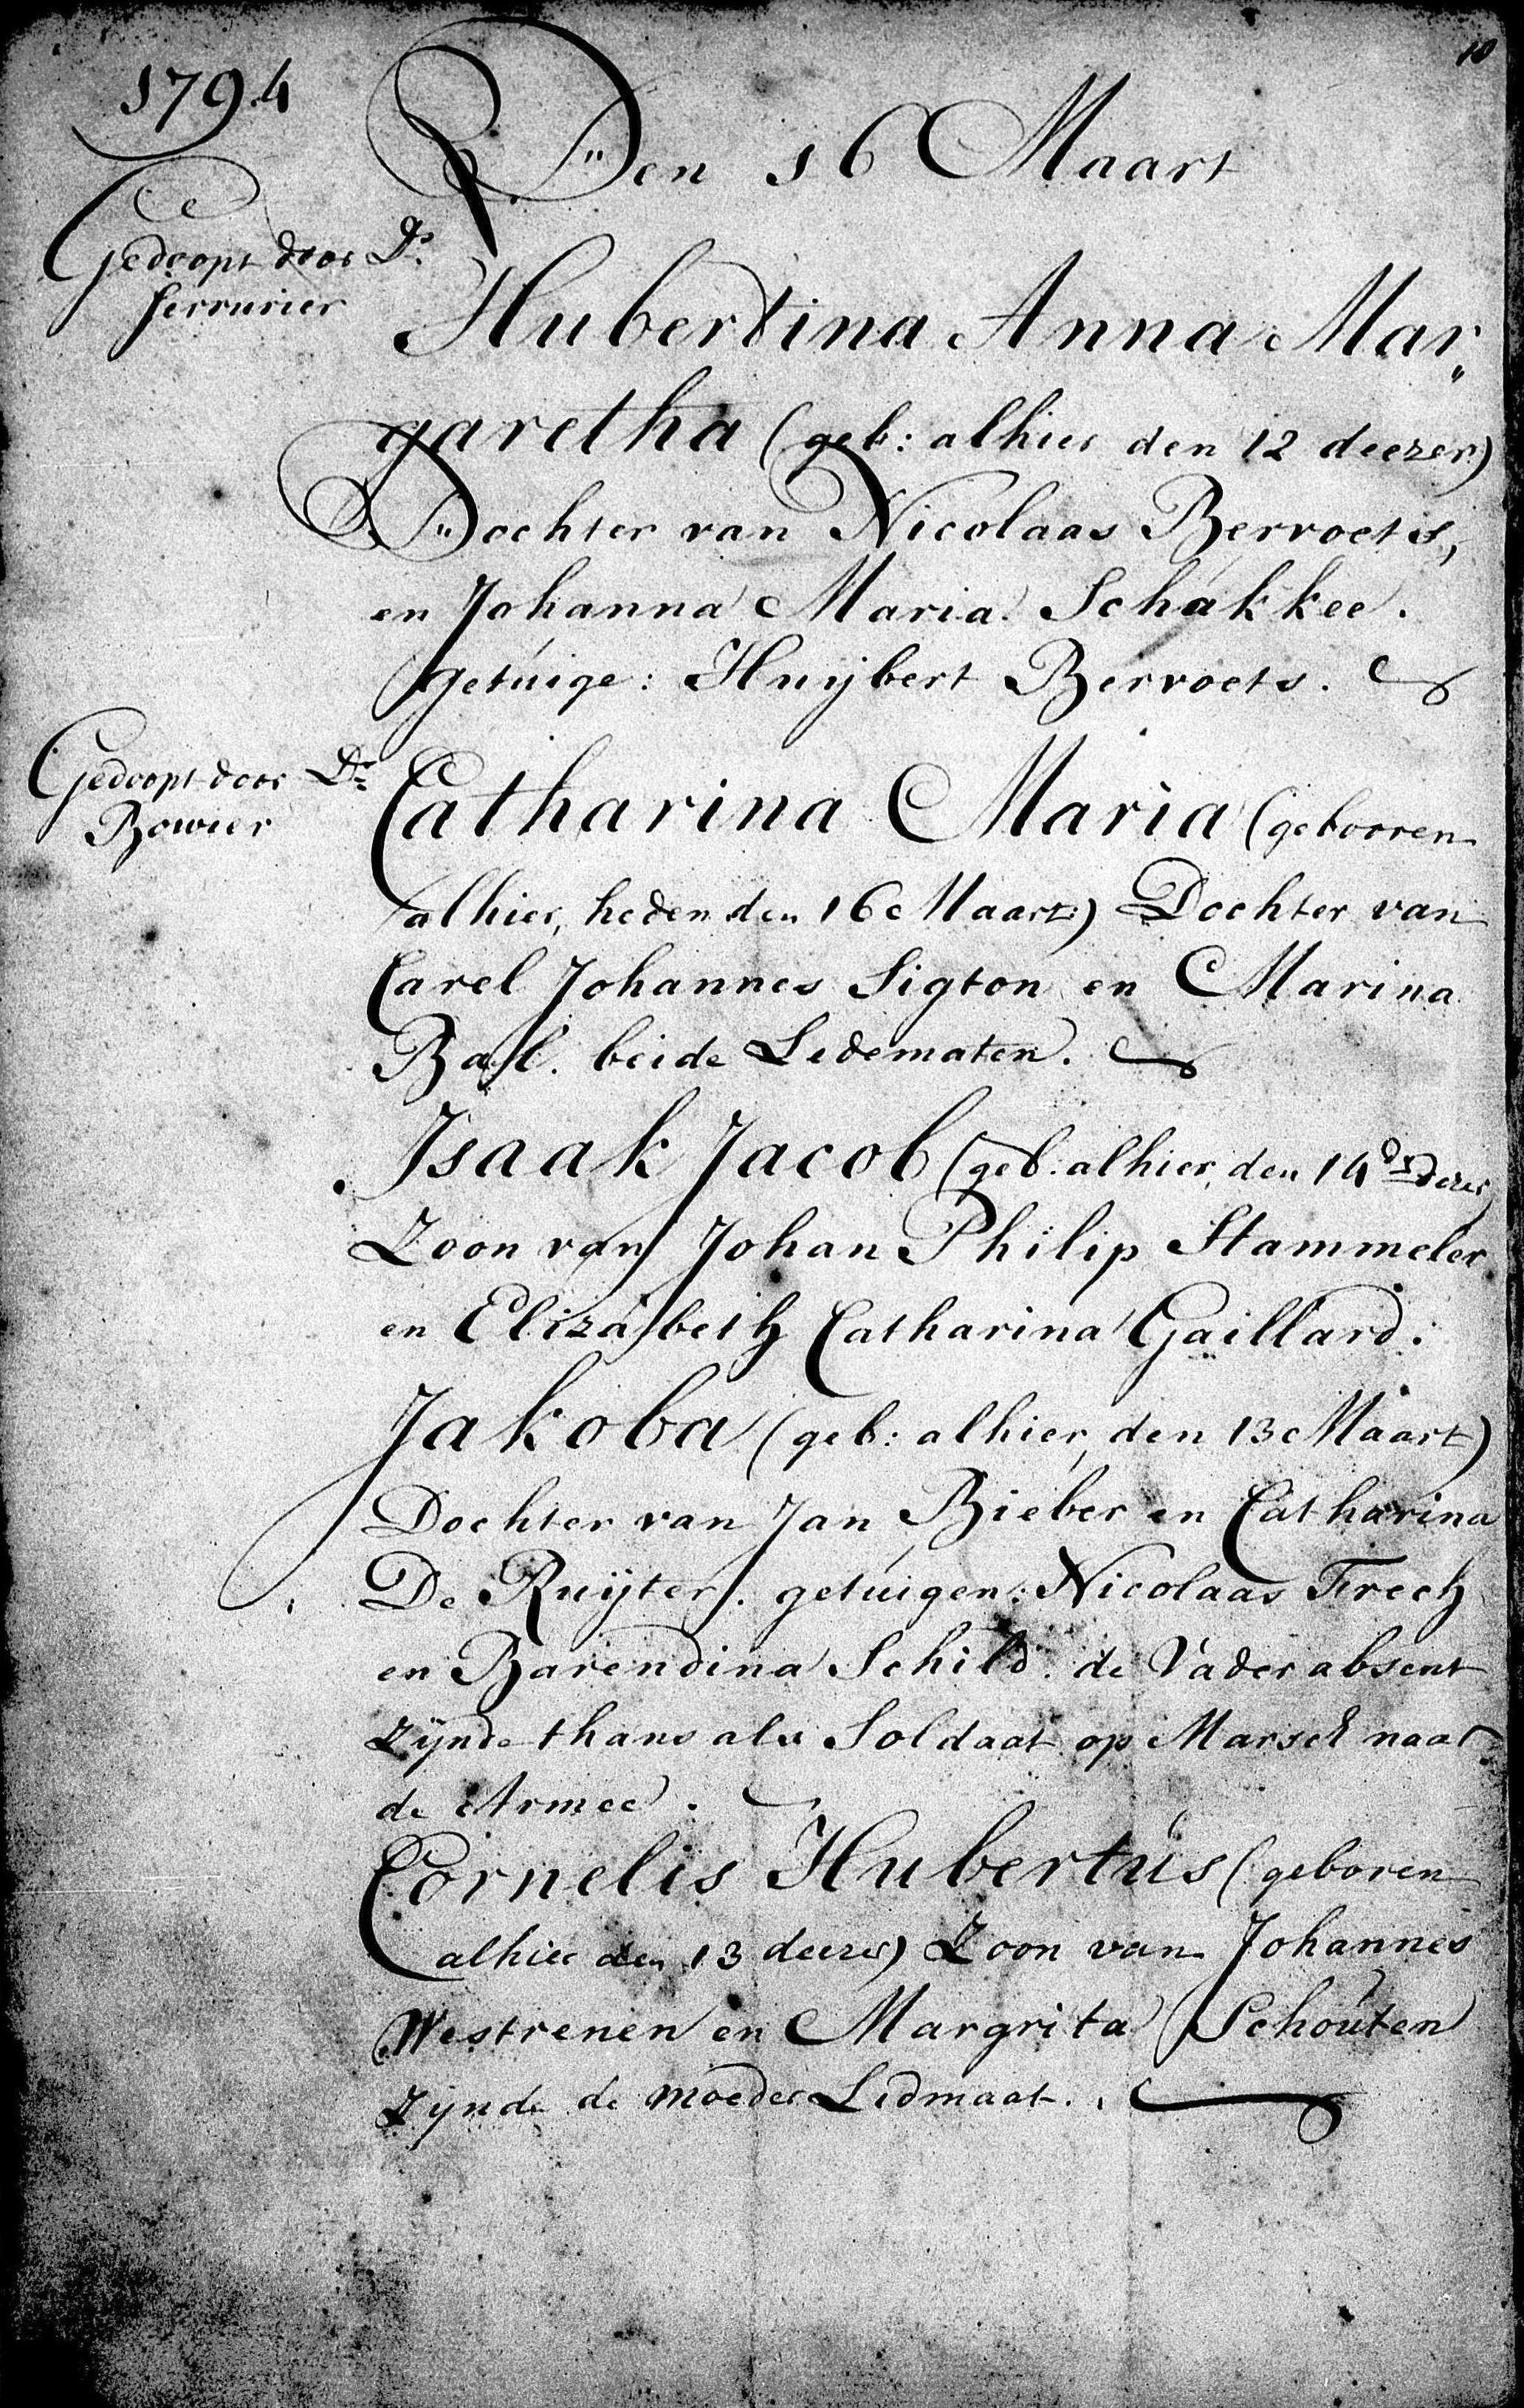 10
1794
Den 16 Maart
Gedoopt door Ds.
Serrurier
Hubertina Anna Mar„
garetha (geb: alhier den 12 deezer)
Dochter van Nicolaas Bervoets,
en Johanna Maria Schakkee.
getuige: Huijbert Bervoets.
Gedoopt door Ds.
Bowier
Catharina Maria (gebooren
alhier, heden den 16 Maart) Dochter van
Carel Johannes Sigton en Marina
Bal. beide Ledematen.
Isaak Jacob (geb. alhier, den 14 dezer)
Zoon van Johan Philip Stammeler
en Elizabeth Catharina Gaillard.
Jakoba (geb: alhier, den 13 Maart)
Dochter van Jan Bieber en Catharina
De Ruijter. getuigen: Nicolaas Frech
en Barendina Schild. de Vader absent
zijnde thans als Soldaat op Marsch naar
de Armee.
Cornelis Hubertus (geboren
alhier den 13 deezer) Zoon van Johannes
Westrenen en Margrita Schouten
zijnde de moeder Lidmaat.